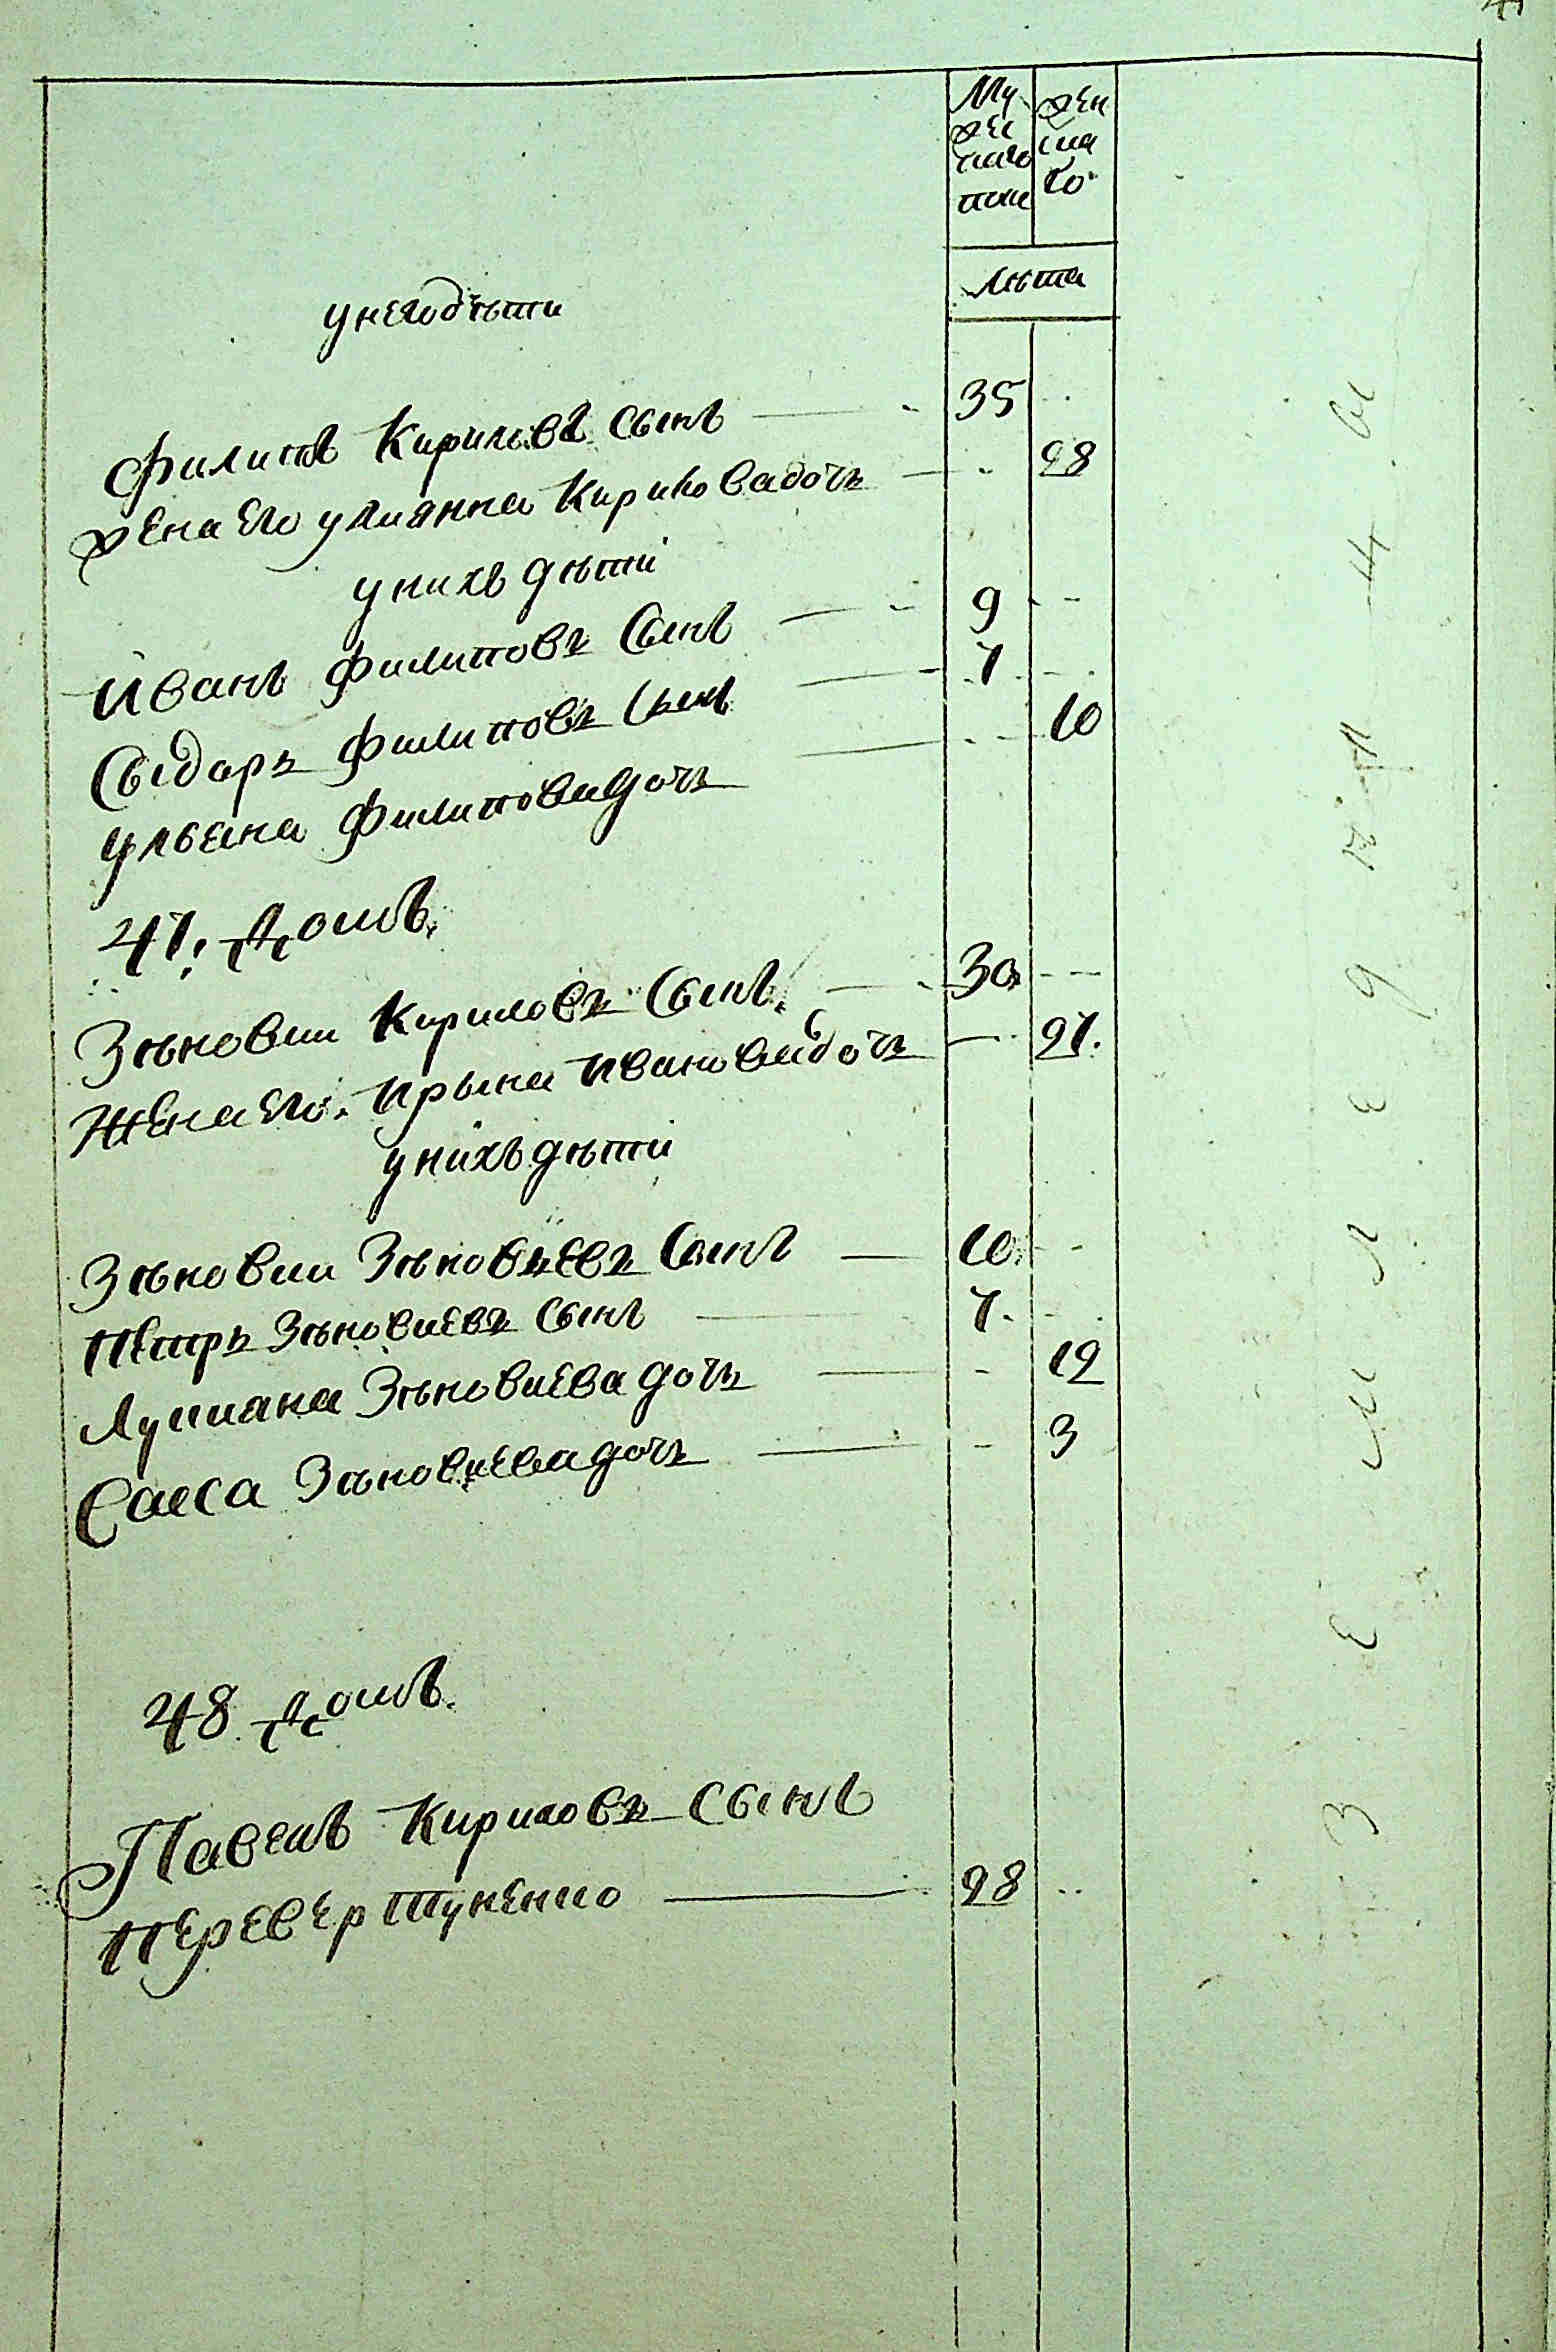 Му жен
жес ска
каго го
полу
лѣта
у него дѣти
Филипъ Кириловъ сынъ 35
жена его улиянна Кирикова дочь 28
у нихъ дѣти
Иванъ Филиповъ Сынъ 9
Сыдоръ Филиповъ Сынъ 7
ульяна Филипова дочь 10
47. Домъ.
Зѣновии Кириловъ Сынъ. 30
Жена его. Ирына Иванова дочь 27.
у нихъ дѣти
Зѣновии Зѣновьевъ Сынъ 10.
Петръ Зѣновиевъ Сынъ 7.
Лукиана Зѣновиева дочь 12
Раиса Зѣновиева дочь 3
48 Домъ.
Павелъ Кириловъ Сынъ
Перевертуненко 28